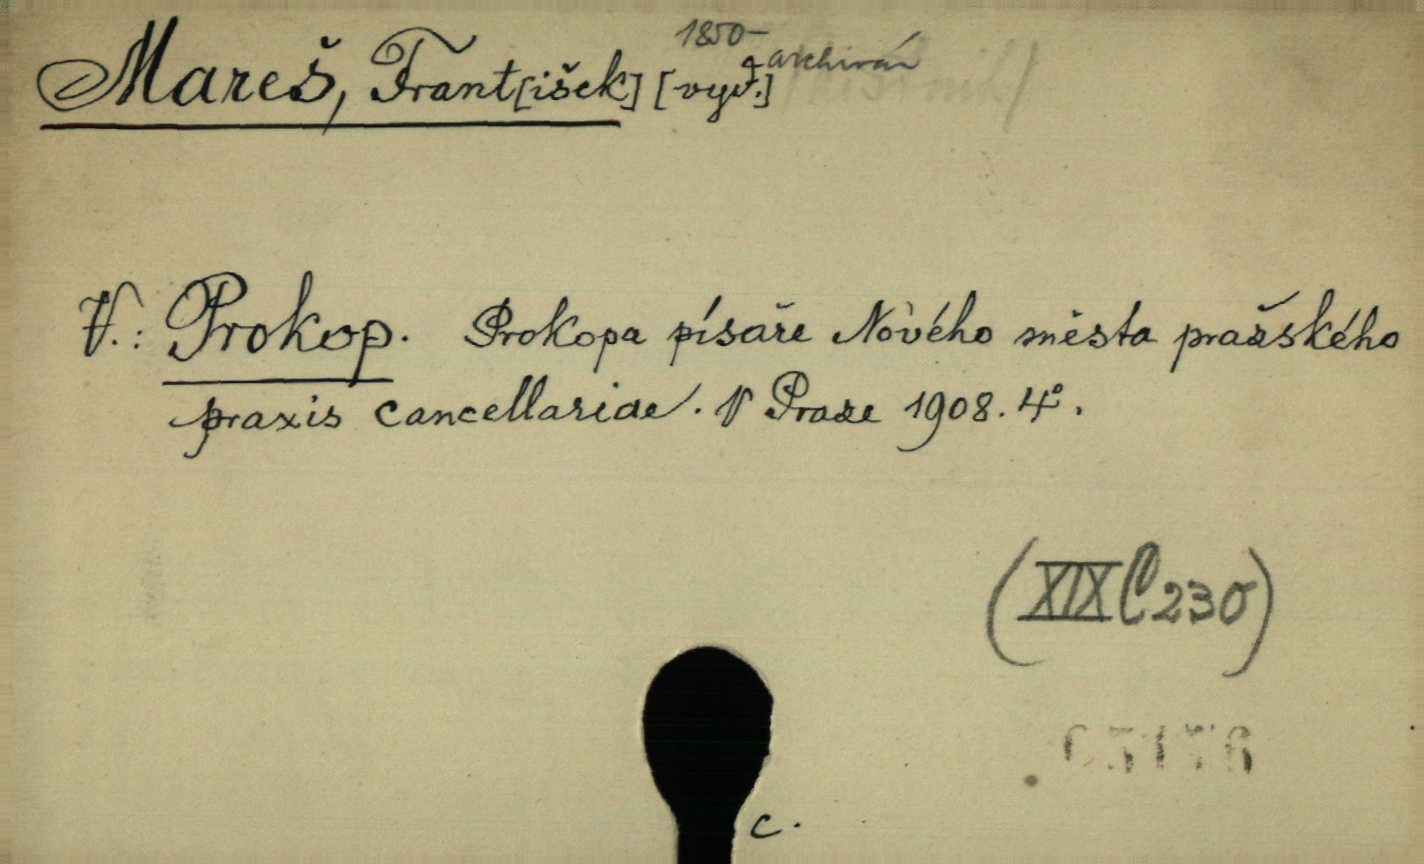 1850-
Mareš, Frant[išek] [vyd.] archivář
V.: Prokop. Prokopa písaře Nového města pražského
praxis cancellariae. V Praze 1908. 4°.
(XIX C 230)
c.